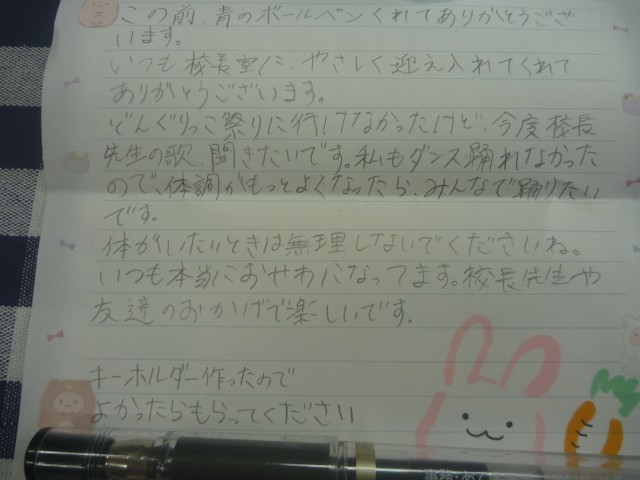 この前、青のボールペンくれてありがとうござ
います。
いつも校長室に、やさしく迎え入れてくれて
ありがとうございます。
どんぐりっこ祭りに行けなかったけど、今度校長
先生の歌、聞きたいです。私もダンス踊れなかった
ので、体調がもっとよくなったら、みんなで踊りたい
です。
体がいたいときは無理しないでくださいね。
いつも本当におせわになってます。校長先生や
友達のおかげで楽しいです。
キーホルダー作ったので
よかったらもらってください